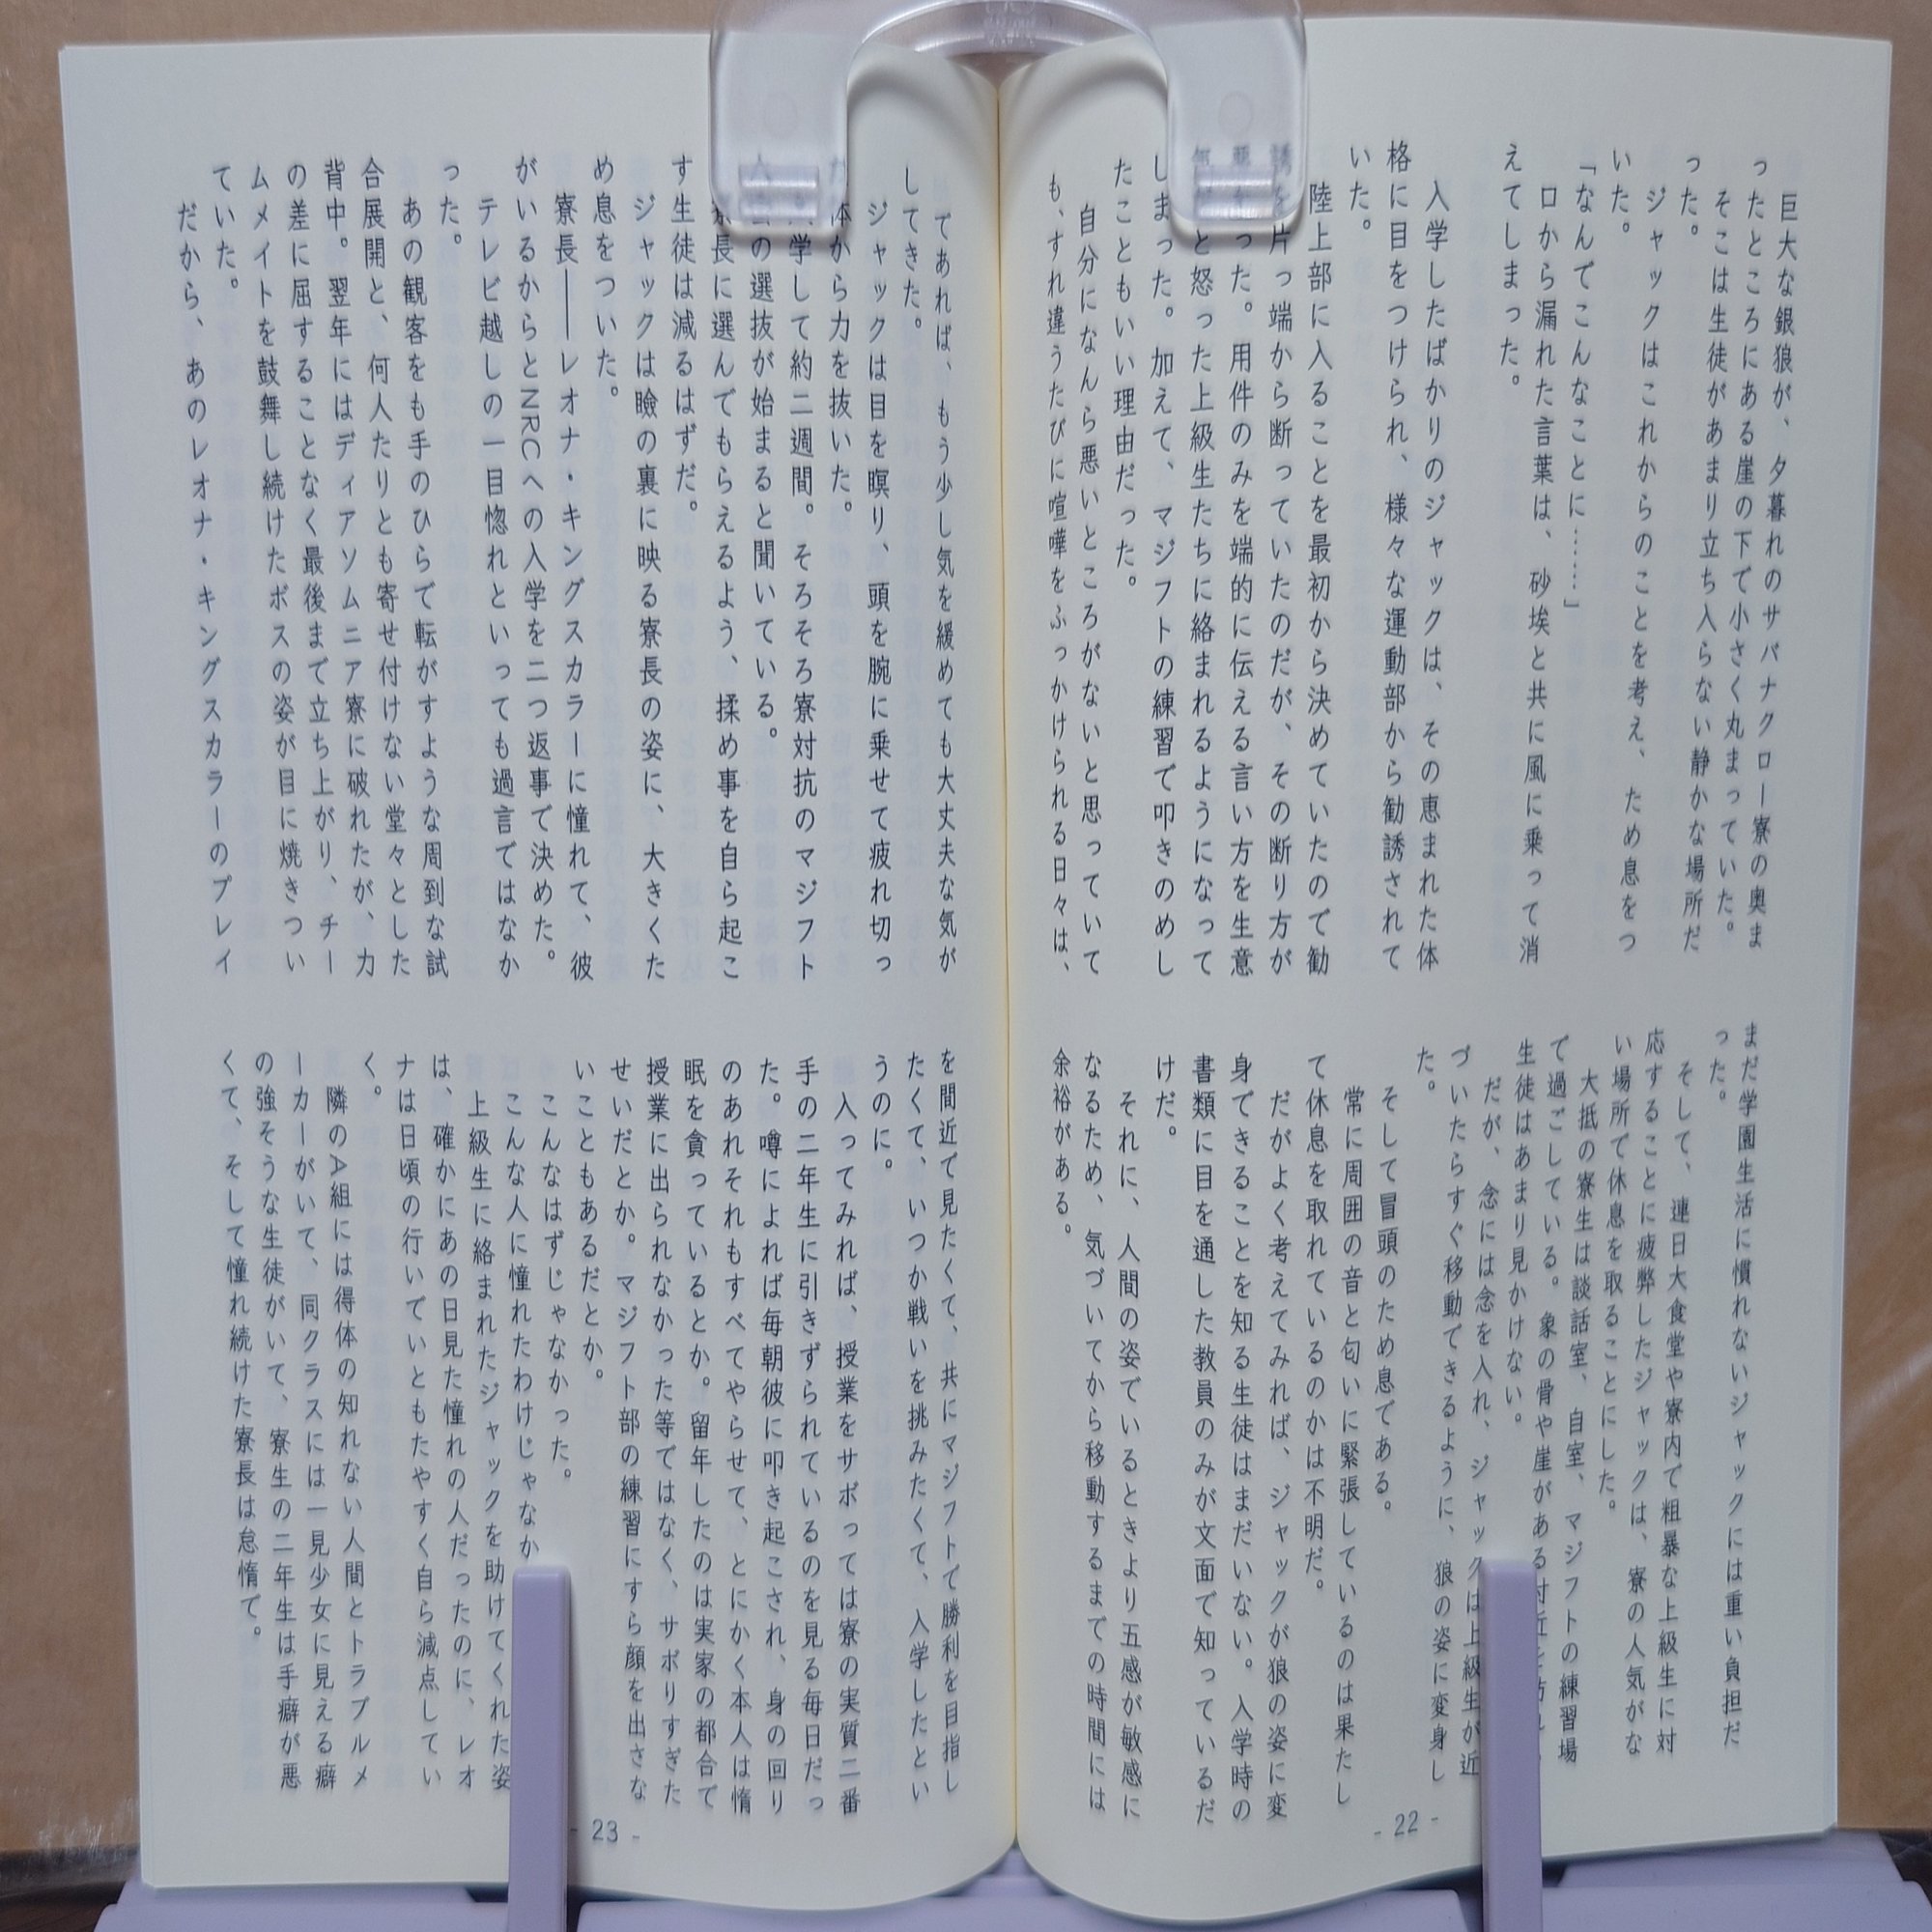 巨大な銀狼が、夕暮れのサバナクロー寮の奥ま
ったところにある崖の下で小さく丸まっていた。
そこは生徒があまり立ち入らない静かな場所だ
った。
ジャックはこれからのことを考え、ため息をつ
いた。
「なんでこんなことに……」
口から漏れた言葉は、砂埃と共に風に乗って消
えてしまった。
入学したばかりのジャックは、その恵まれた体
格に目をつけられ、様々な運動部から勧誘されて
いた。
陸上部に入ることを最初から決めていたので勧
誘を片っ端から断っていたのだが、その断り方が
悪かった。用件のみを端的に伝える言い方を生意
気だと怒った上級生たちに絡まれるようになって
しまった。加えて、マジフトの練習で叩きのめし
たこともいい理由だった。
自分になんら悪いところがないと思っていて
も、すれ違うたびに喧嘩をふっかけられる日々は、
まだ学園生活に慣れないジャックには重い負担だ
った。
そして、連日大食堂や寮内で粗暴な上級生に対
応することに疲弊したジャックは、寮の人気がな
い場所で休息を取ることにした。
大抵の寮生は談話室、自室、マジフトの練習場
で過ごしている。象の骨や崖がある付近を
生徒はあまり見かけない。
だが、念には念を入れ、ジャックは上級生が近
づいたらすぐ移動できるように、狼の姿に変身し
た。
そして冒頭のため息である。
常に周囲の音と匂いに緊張しているのは果たし
て休息を取れているのかは不明だ。
だがよく考えてみれば、ジャックが狼の姿に変
身できることを知る生徒はまだいない。入学時の
書類に目を通した教員のみが文面で知っているだ
けだ。
それに、人間の姿でいるときより五感が敏感に
なるため、気づいてから移動するまでの時間には
余裕がある。
- 22 -
であれば、もう少し気を緩めても大丈夫な気が
してきた。
ジャックは目を瞑り、頭を腕に乗せて疲れ切っ
た体から力を抜いた。
学して約二週間。そろそろ寮対抗のマジフト
の選抜が始まると聞いている。
寮長に選んでもらえるよう、揉め事を自ら起こ
す生徒は減るはずだ。
ジャックは瞼の裏に映る寮長の姿に、大きくた
め息をついた。
寮長――レオナ・キングスカラーに憧れて、彼
がいるからとNRCへの入学を二つ返事で決めた。
テレビ越しの一目惚れといっても過言ではなか
った。
あの観客をも手のひらで転がすような周到な試
合展開と、何人たりとも寄せ付けない堂々とした
背中。翌年にはディアソムニア寮に破れたが、力
の差に屈することなく最後まで立ち上がり、チー
ムメイトを鼓舞し続けたボスの姿が目に焼きつい
ていた。
だから、あのレオナ・キングスカラーのプレイ
を間近で見たくて、共にマジフトで勝利を目指し
たくて、いつか戦いを挑みたくて、入学したとい
うのに。
入ってみれば、授業をサボっては寮の実質二番
手の二年生に引きずられているのを見る毎日だっ
た。噂によれば毎朝彼に叩き起こされ、身の回り
のあれそれもすべてやらせて、とにかく本人は惰
眠を貪っているとか。留年したのは実家の都合で
授業に出られなかった等ではなく、サボりすぎた
せいだとか。マジフト部の練習にすら顔を出さな
いこともあるだとか。
こんなはずじゃなかった。
こんな人に憧れたわけじゃなか
上級生に絡まれたジャックを助けてくれた姿
は、確かにあの日見た憧れの人だったのに、レオ
ナは日頃の行いでいともたやすく自ら減点してい
く。
隣のA組には得体の知れない人間とトラブルメ
ーカーがいて、同クラスには一見少女に見える癖
の強そうな生徒がいて、寮生の二年生は手癖が悪
くて、そして憧れ続けた寮長は怠惰で。
- 23 -